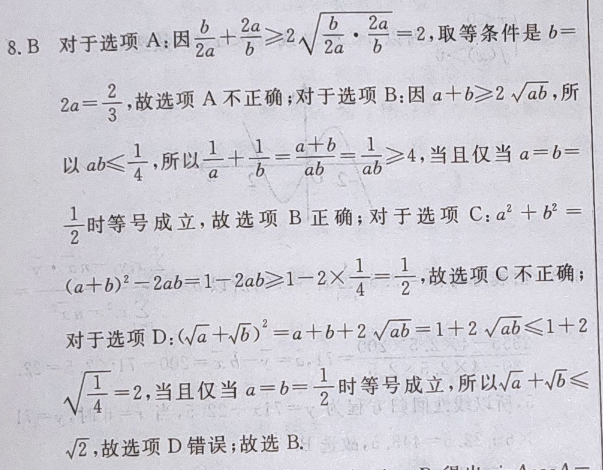 8. B 对于选项 A:因 b/2a + 2a/b ≥ 2√(b/2a · 2a/b) = 2,取等条件是 b=
2a = 2/3,故选项 A 不正确;对于选项 B:因 a+b≥2√ab,所
以 ab≤1/4,所以 1/a + 1/b = (a+b)/ab = 1/ab ≥4,当且仅当 a=b=
1/2 时等号成立,故选项 B 正确;对于选项 C:a²+b²=
(a+b)²-2ab=1-2ab≥1-2×1/4=1/2,故选项 C 不正确;
对于选项 D:(√a+√b)²=a+b+2√ab=1+2√ab≤1+2
√(1/4)=2,当且仅当 a=b=1/2 时等号成立,所以√a+√b≤
√2,故选项 D 错误;故选 B.